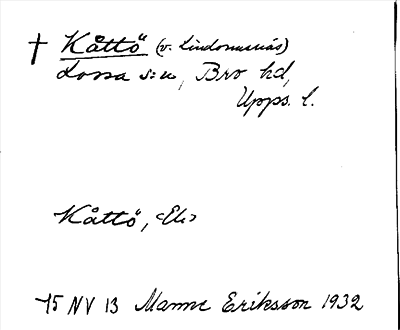 † Kåttö (v. Lindormsnäs)
Lossa s:n, Bro hd,
Upps. l.
Kåttö, <Ek>
75 NV 13 Manne Eriksson 1932